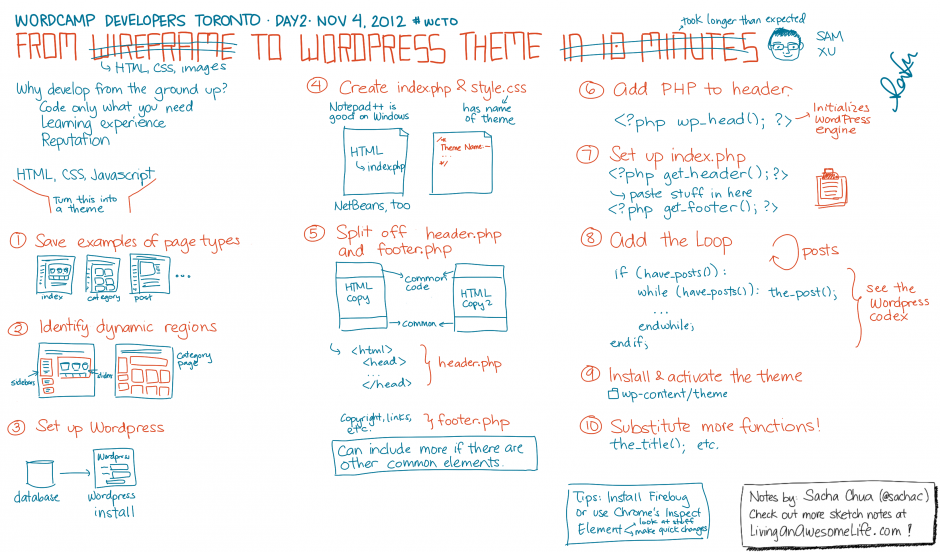 WORDCAMP DEVELOPERS TORONTO · DAY2 · NOV 4, 2012 #WCTO
took longer than expected
FROM WIREFRAME TO WORDPRESS THEME IN 10 MINUTES
SAM
XU
HTML, CSS, images
Why develop from the ground up?
Code only what you need
Learning experience
Reputation
HTML, CSS, Javascript
Turn this into
a theme
① Save examples of page types
index
category
post
...
② Identify dynamic regions
sidebars
slider
category
page
③ Set up Wordpress
Wordpress
database
Wordpress
install
④ Create index.php & style.css
Notepad++ is
good on Windows
has name
of theme
HTML
index.php
/*
Theme Name:
...
*/
NetBeans, too
⑤ Split off header.php
and footer.php
HTML
copy
common
code
HTML
Copy 2
common
<html>
<head>
...
</head>
header.php
Copyright, links,
etc.
footer.php
Can include more if there are
other common elements.
⑥ Add PHP to header
<?php wp_head(); ?>
Initializes
WordPress
engine
⑦ Set up index.php
<?php get_header(); ?>
paste stuff in here
<?php get_footer(); ?>
⑧ Add the Loop
posts
if (have_posts()):
while (have_posts()): the_post();
...
endwhile;
endif;
see the
Wordpress
codex
⑨ Install & activate the theme
wp-content/theme
⑩ Substitute more functions!
the_title(); etc.
Tips: Install Firebug
or use Chrome's Inspect
Element
look at stuff
make quick changes
Notes by: Sacha Chua (@sachac)
Check out more sketch notes at
LivingAnAwesomeLife.com!